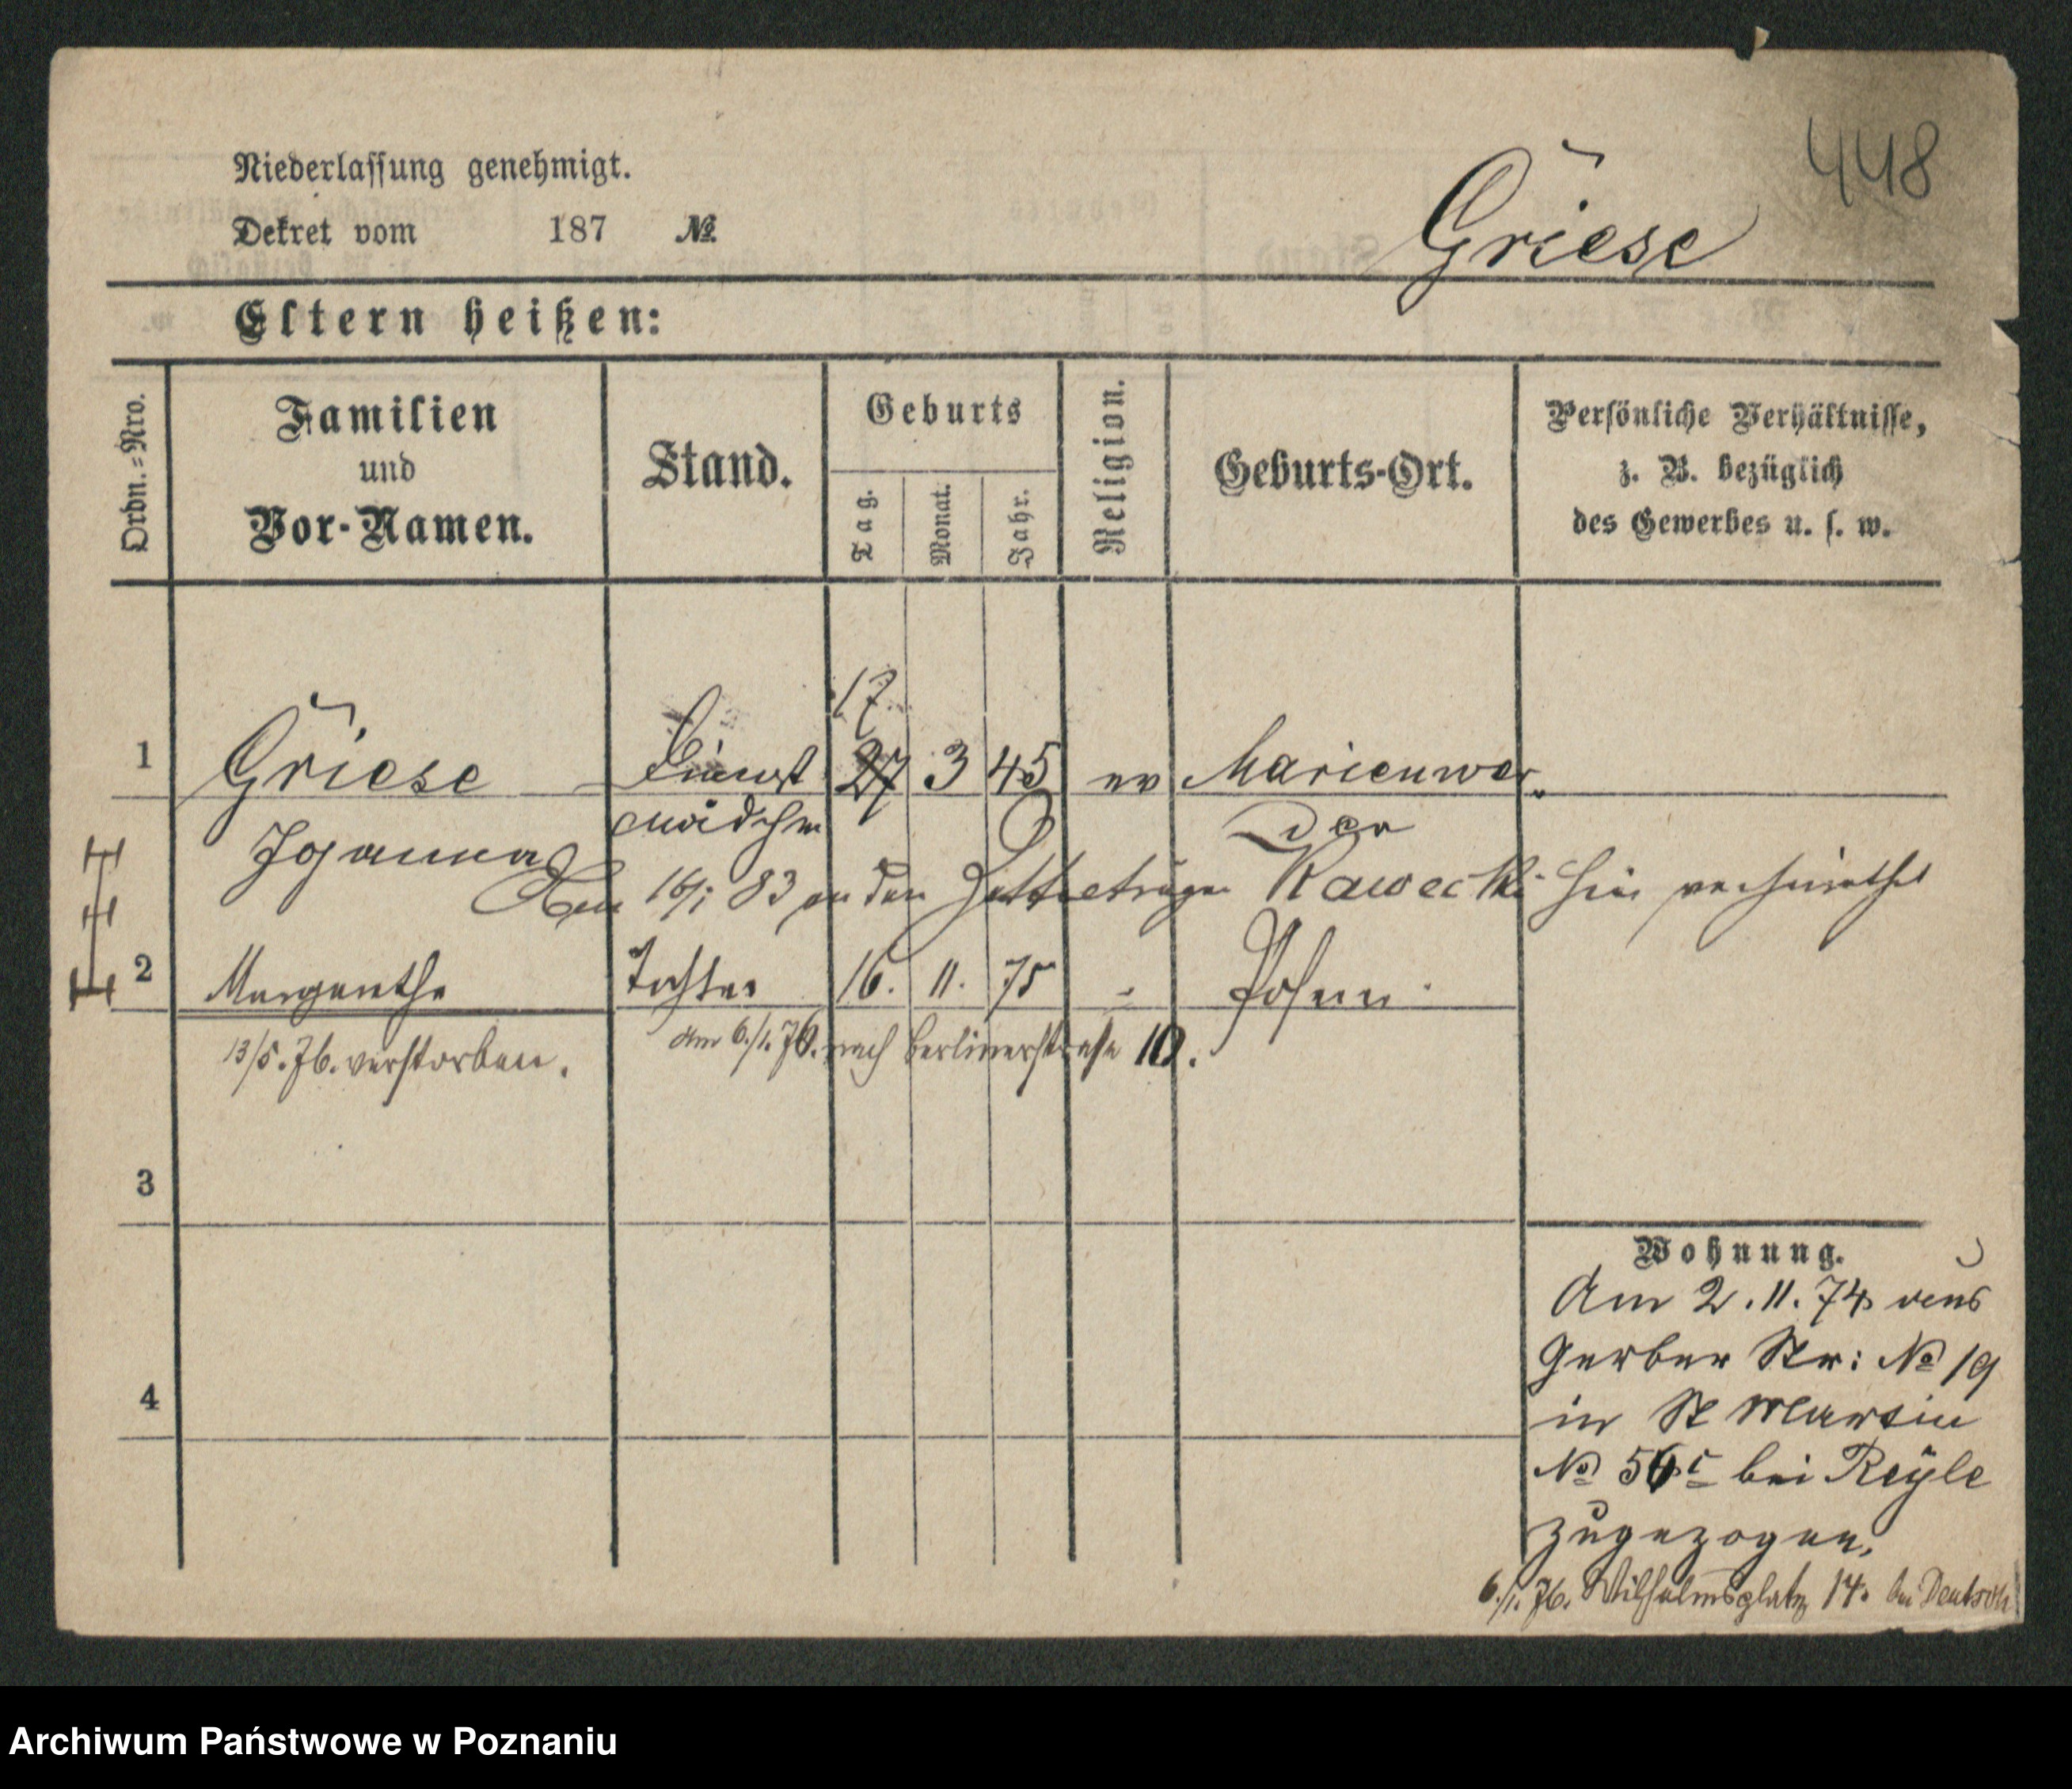 448
Niederlassung genehmigt.
Dekret vom 187 №
Griese
Eltern heißen:
Ordn.-Nro.
Familien
und
Vor-Namen.
Stand.
Geburts
Tag.
Monat.
Jahr.
Religion.
Geburts-Ort.
Persönliche Verhältnisse,
z. B. bezüglich
des Gewerbes u. s. w.
17
1 Griese Dienst 27 3 45 ev Marienwer
mädchen der
Johanna
16/1 83 an den Rawecki hier verheirathet
2 Margarethe Tochter 16. 11. 75 - Posen.
13/5. 76. verstorben.
Am 6./1. 76. nach Berlinerstraße 10.
3
4
Wohnung.
Am 2. 11. 74 von
Gerber Str: № 19
in St Martin
№ 56 bei Reyle
zugezogen,
6./1. 76. Wilhelmsplatz 14. bei Deutsch
Archiwum Państwowe w Poznaniu